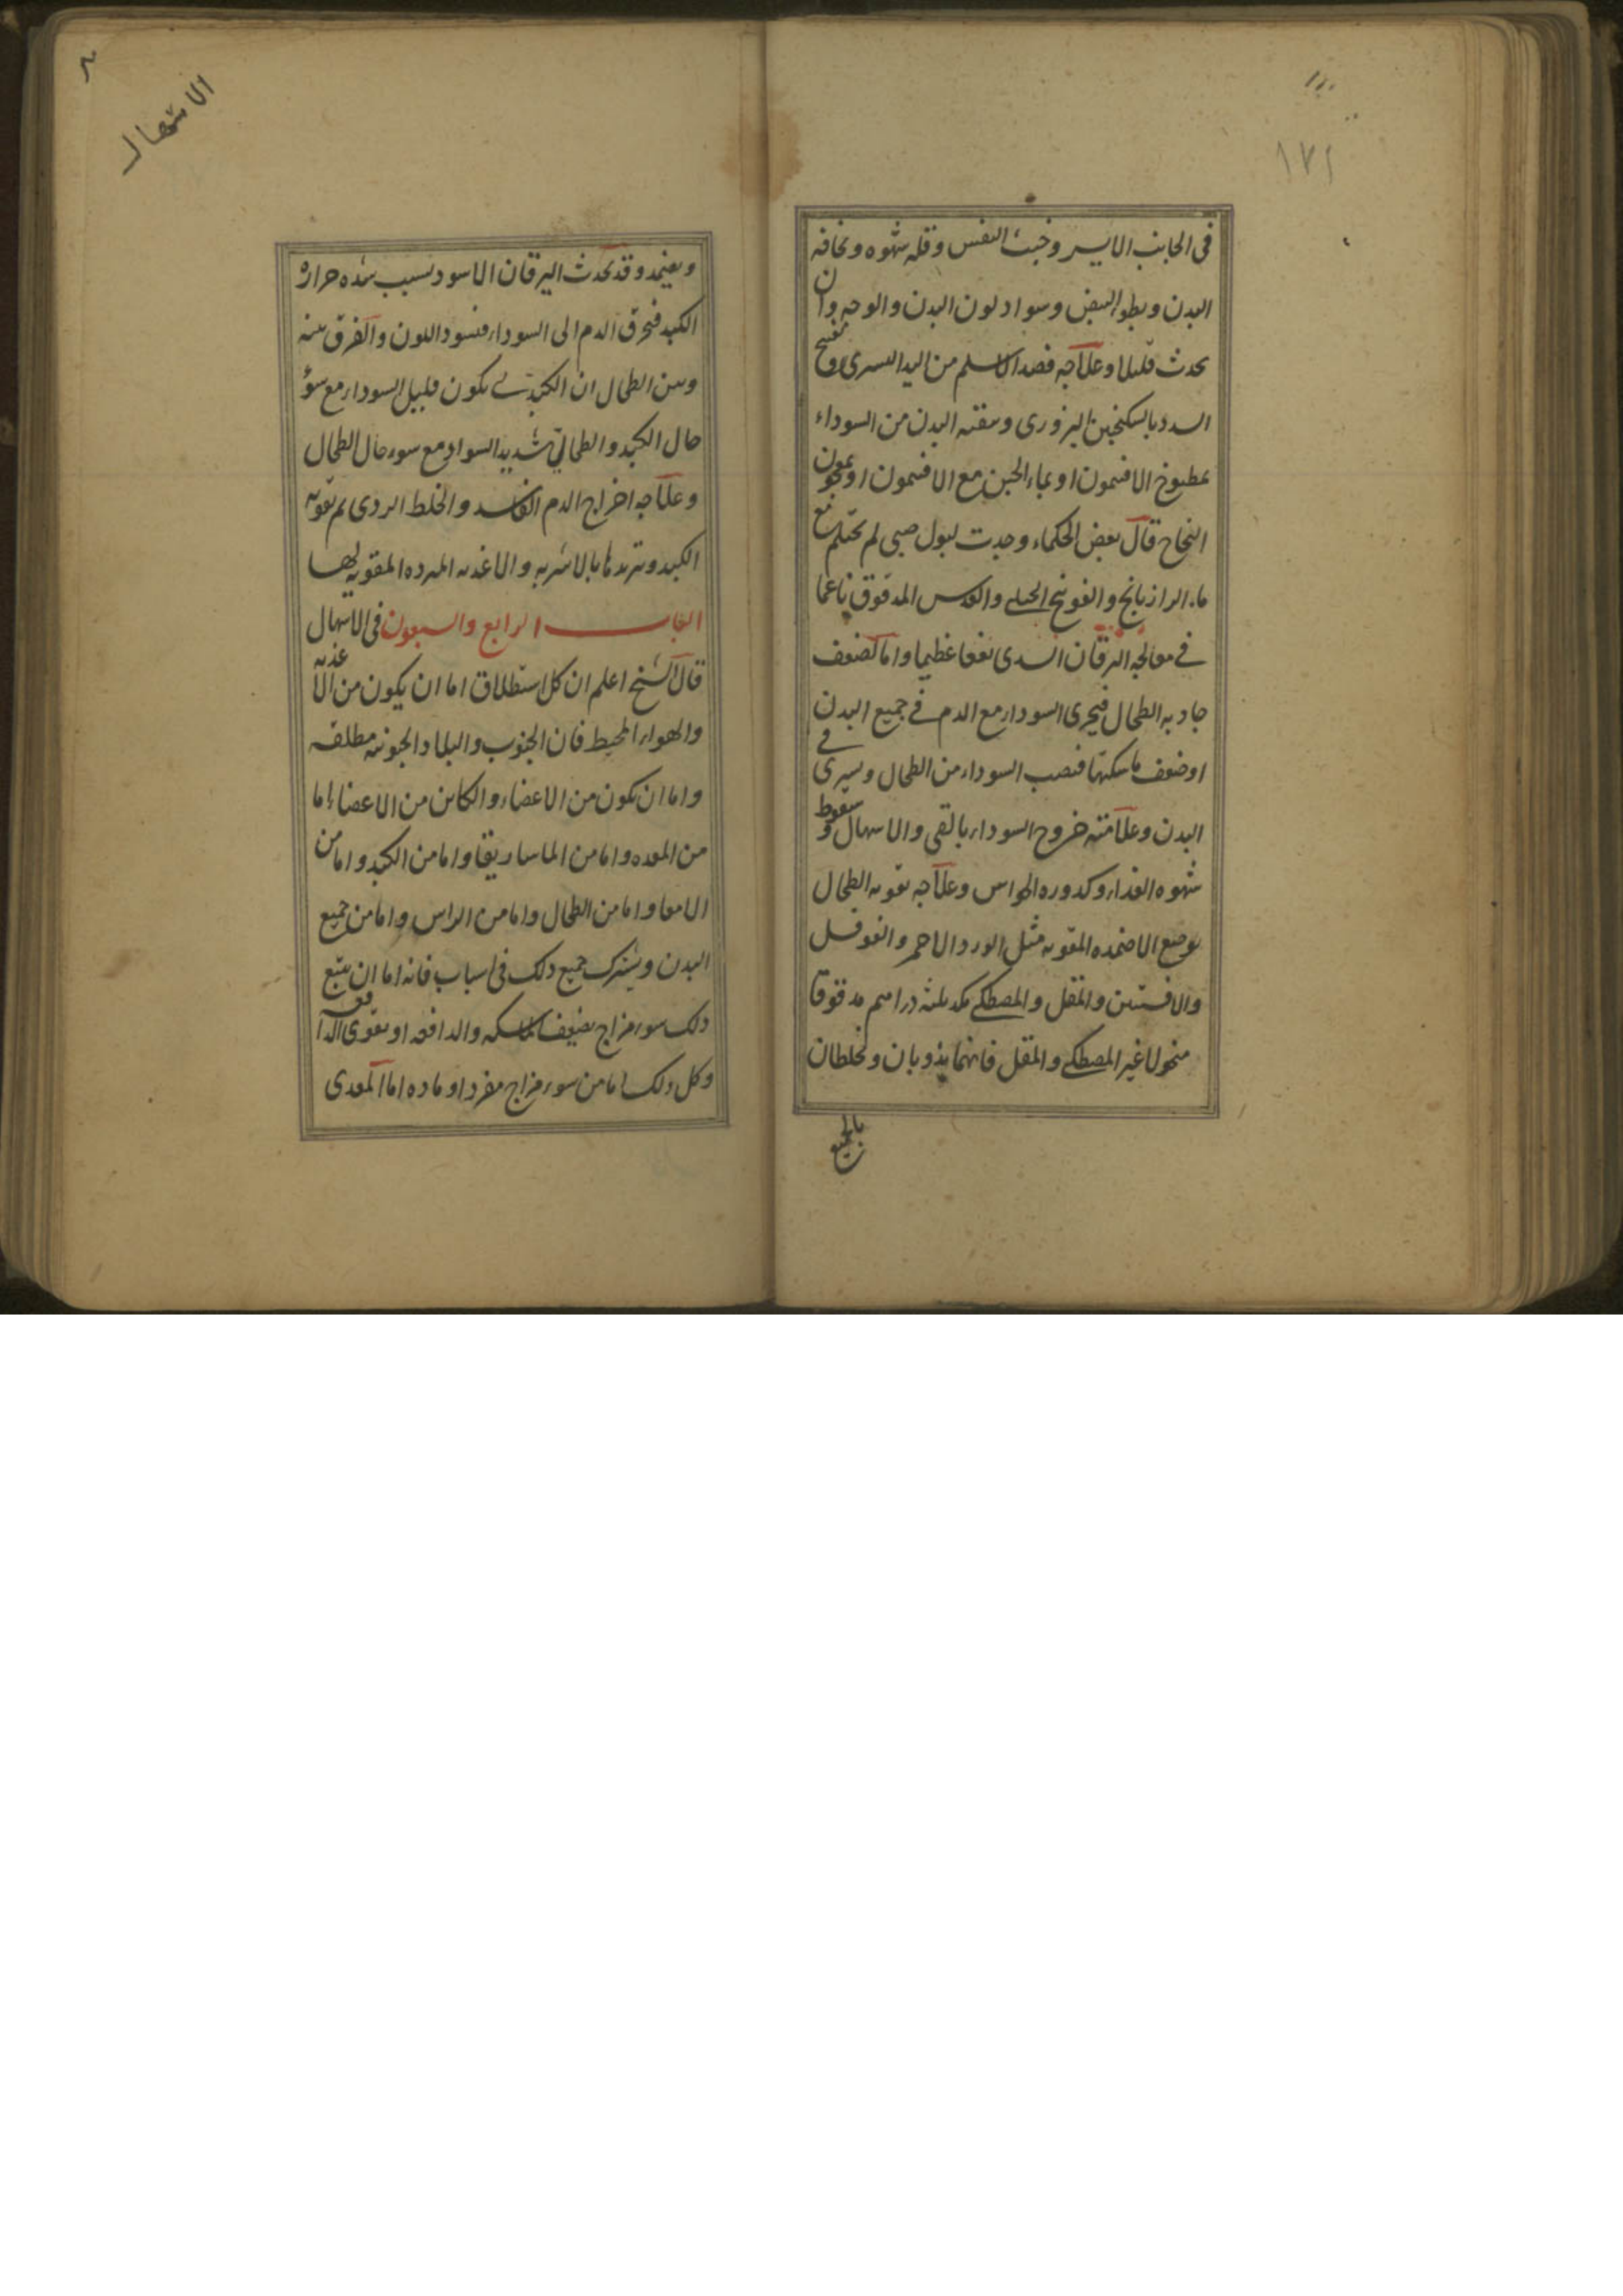 ١٧٢
فى الجانب الايسر وخبث النفس وقله شهوه ونحافه
البدن وبطو النبض وسواد لون البدن والوجه وان
يحدث قليلا وعلاجه فصد الاسلم من اليد اليسرى وتفتيح
السدد بالسكنجبين البزورى وتنقيه البدن من السوداء
بمطبوخ الافتيمون او بماء الجبن مع الافتيمون او بمعجون
النجاح قال بعض الحكماء وجدت لبول صبى لم يحتلم مع
ماء الرازيانج والفوتنج الجبلى والعدس المدقوق ناعما
فى معالجه اليرقان السددى نفعا عظيما واما لضعف
جاذبه الطحال فيجرى السوداء مع الدم فى جميع البدن
او ضعف ماسكتها فتصب السوداء من الطحال ويسرى فى
البدن وعلامته خروج السوداء بالقى والاسهال وسقوط
شهوه الغذاء وكدوره الحواس وعلاجه تقويه الطحال
بوضع الاضمده المقويه مثل الورد الاحمر والفوفل
والافسنتين والمقل والمصطكى مكد ثلثه دراهم مدقوقا
منخولا غير المصطكى والمقل فانهما يذوبان ويخلطان
بالجميع
الاسهال
ويضمد وقد يحدث اليرقان الاسود بسبب شده حراره
الكبد فيحرق الدم الى السوداء فيسود اللون والفرق بينه
وبين الطحال ان الكبدى يكون قليل السوداء مع سوء
حال الكبد والطحالى شديد السواد مع سوء حال الطحال
وعلاجه اخراج الدم الفاسد والخلط الردى ثم تقويه
الكبد وتبريدها بالاشربه والاغذيه المبرده المقويه لها
الباب الرابع والسبعون فى الاسهال
قال الشيخ اعلم ان كل استطلاق اما ان يكون من الاغذيه
والهواء المحيط فان الجنوب والبلاد الجنوبيه مطلقه
واما ان يكون من الاعضاء والكاين من الاعضاء اما
من المعده واما من الماساريقا واما من الكبد واما من
الامعا واما من الطحال واما من الراس واما من جميع
البدن ويشترك جميع ذلك فى اسباب فانه اما ان يتبع
ذلك سوء مزاج يضعف الماسكه والدافعه او يقوى الدافعه
وكل ذلك اما من سوء مزاج مفرد او ماده اما المعدى